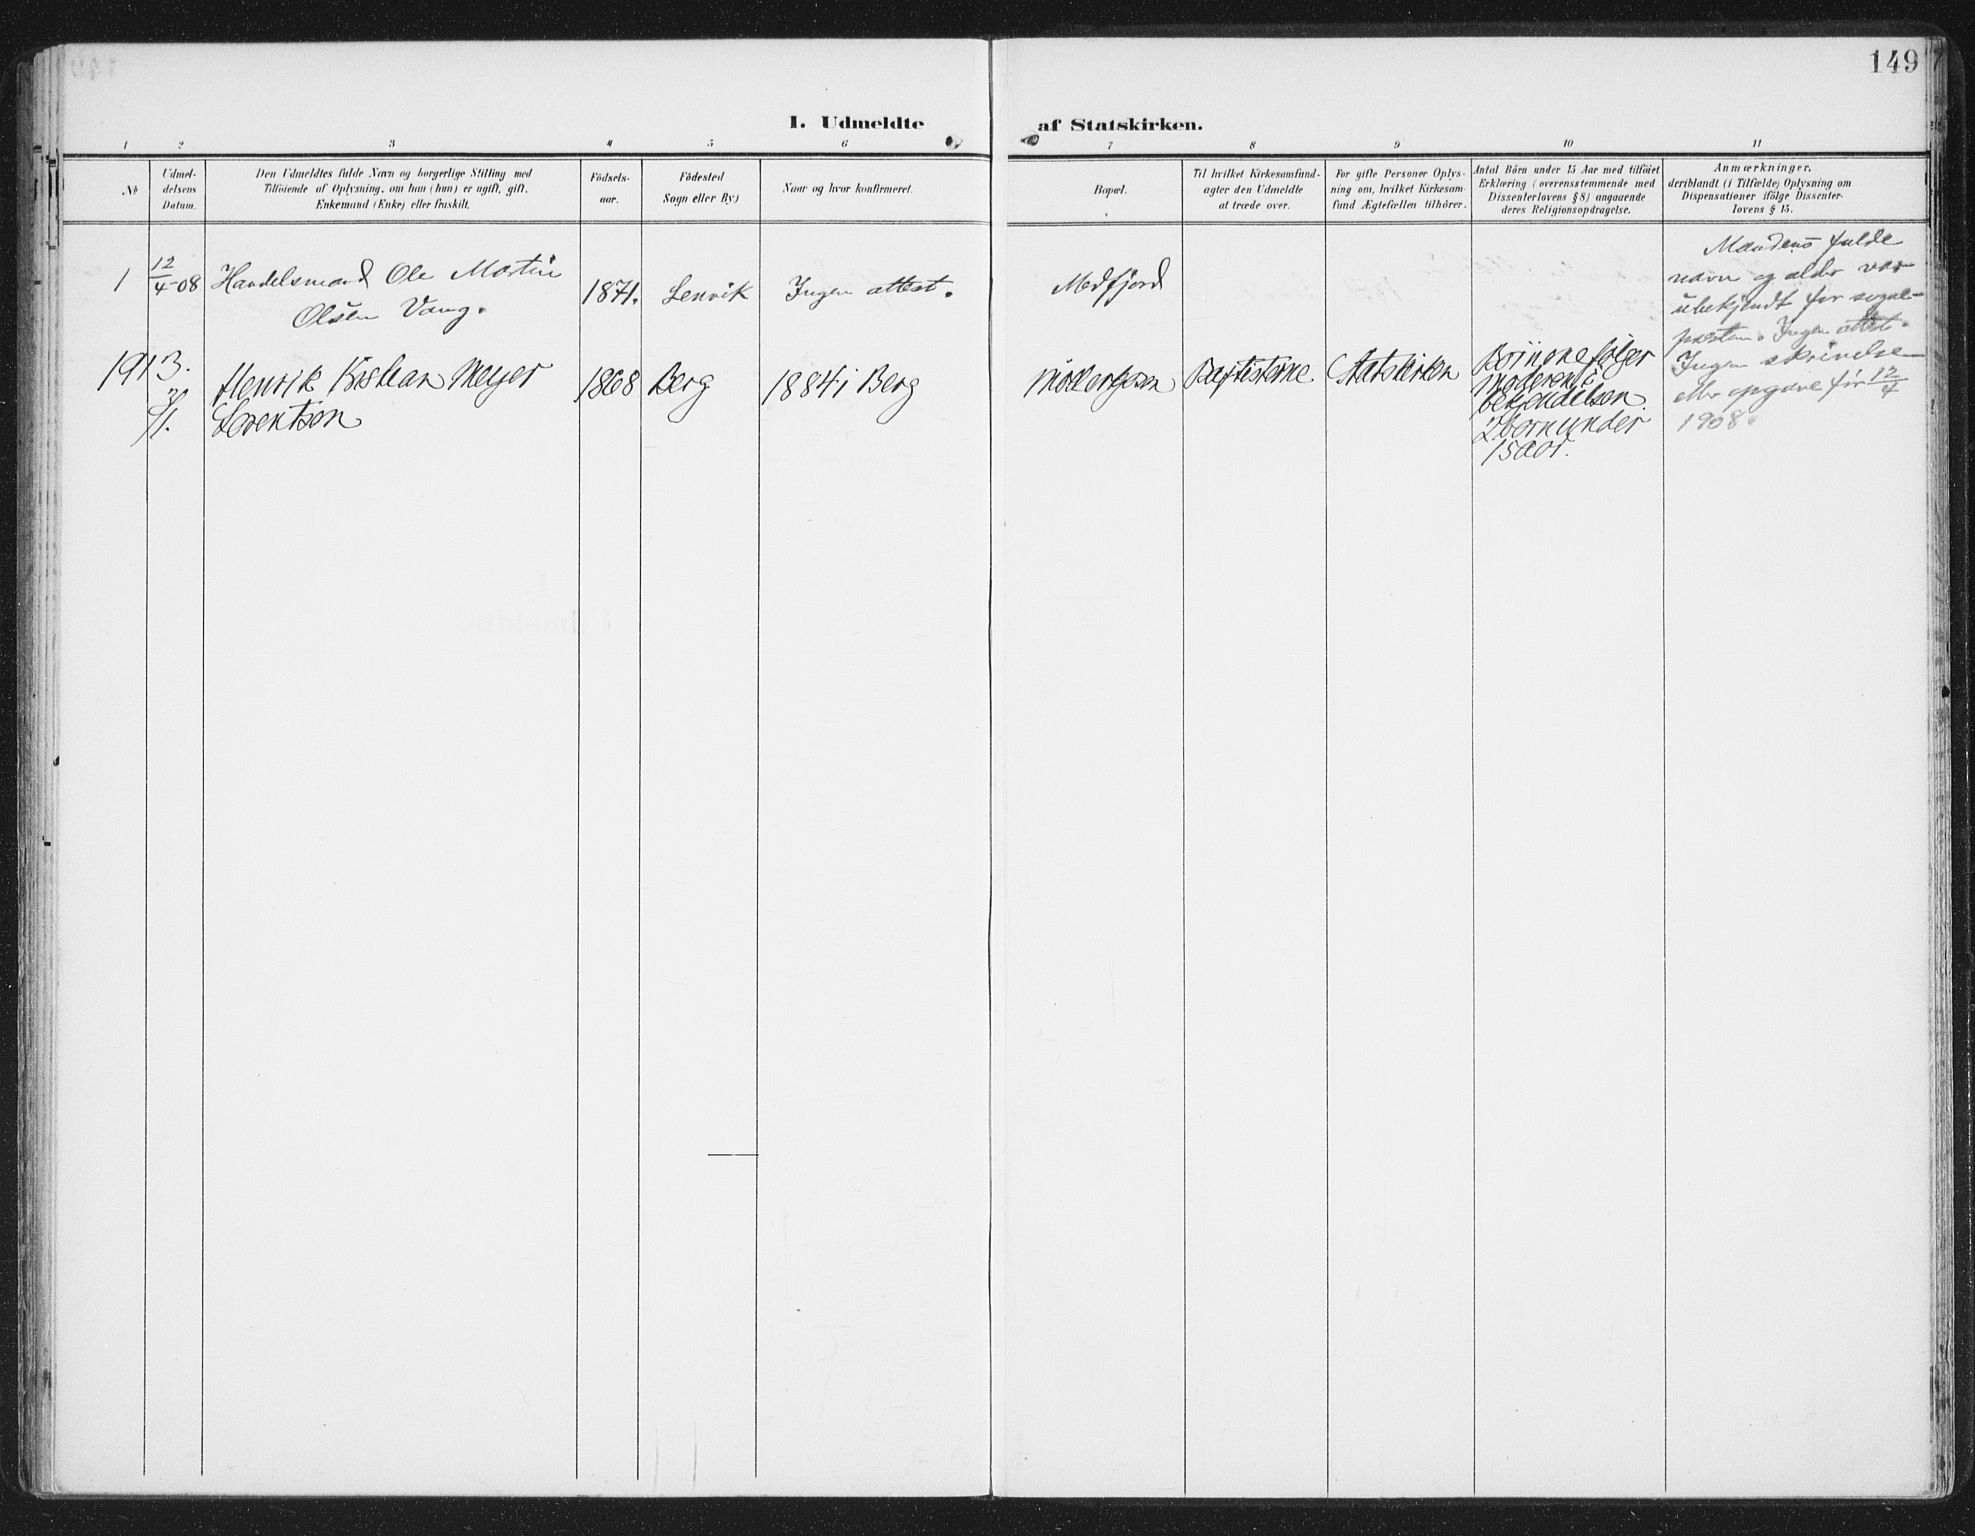 149
I. Udmeldte af Statskirken.
1 2 3 4 5 6 7 8 9 10 11
№
Udmel-
delsens
Datum.
Den Udmeldtes fulde Navn og borgerlige Stilling med
Tilföiende af Oplysning, om han (hun) er ugift, gift,
Enkemand (Enke) eller fraskilt.
Födsels-
aar.
Födested
Sogn eller By)
Naar og hvor konfirmeret.
Bopæl.
Til hvilket Kirkesamfund-
agter den Udmeldte
at træde over.
For gifte Personer Oplys-
ning om, hvilket Kirkesam-
fund Ægtefællen tilhörer.
Antal Börn under 15 Aar med tilföiet
Erklæring (overensstemmende med
Dissenterlovens § 8) angaaende
deres Religionsopdragelse.
Anmærkninger,
deriblandt (i Tilfælde) Oplysning om
Dispensationer ifölge Dissenter-
lovens § 15.
1
12/4-08
Handelsmand Ole Martin
Olsen Vang.
1871.
Lenvik
Ingen attest.
Medfjord
Mandens fulde
navn og alder var
ubekjendt for sogne-
presten. Ingen attest.
Ingen skrivelse
eller opgave før 12/4
1908.
1913.
/1.
Henrik Kristian Meyer
Lorentsen
1868
Berg
1884 i Berg
Baptisterne
Statskirken
Börnene følger
moderen i
bekjendelsen.
2 børn under
15 aar.